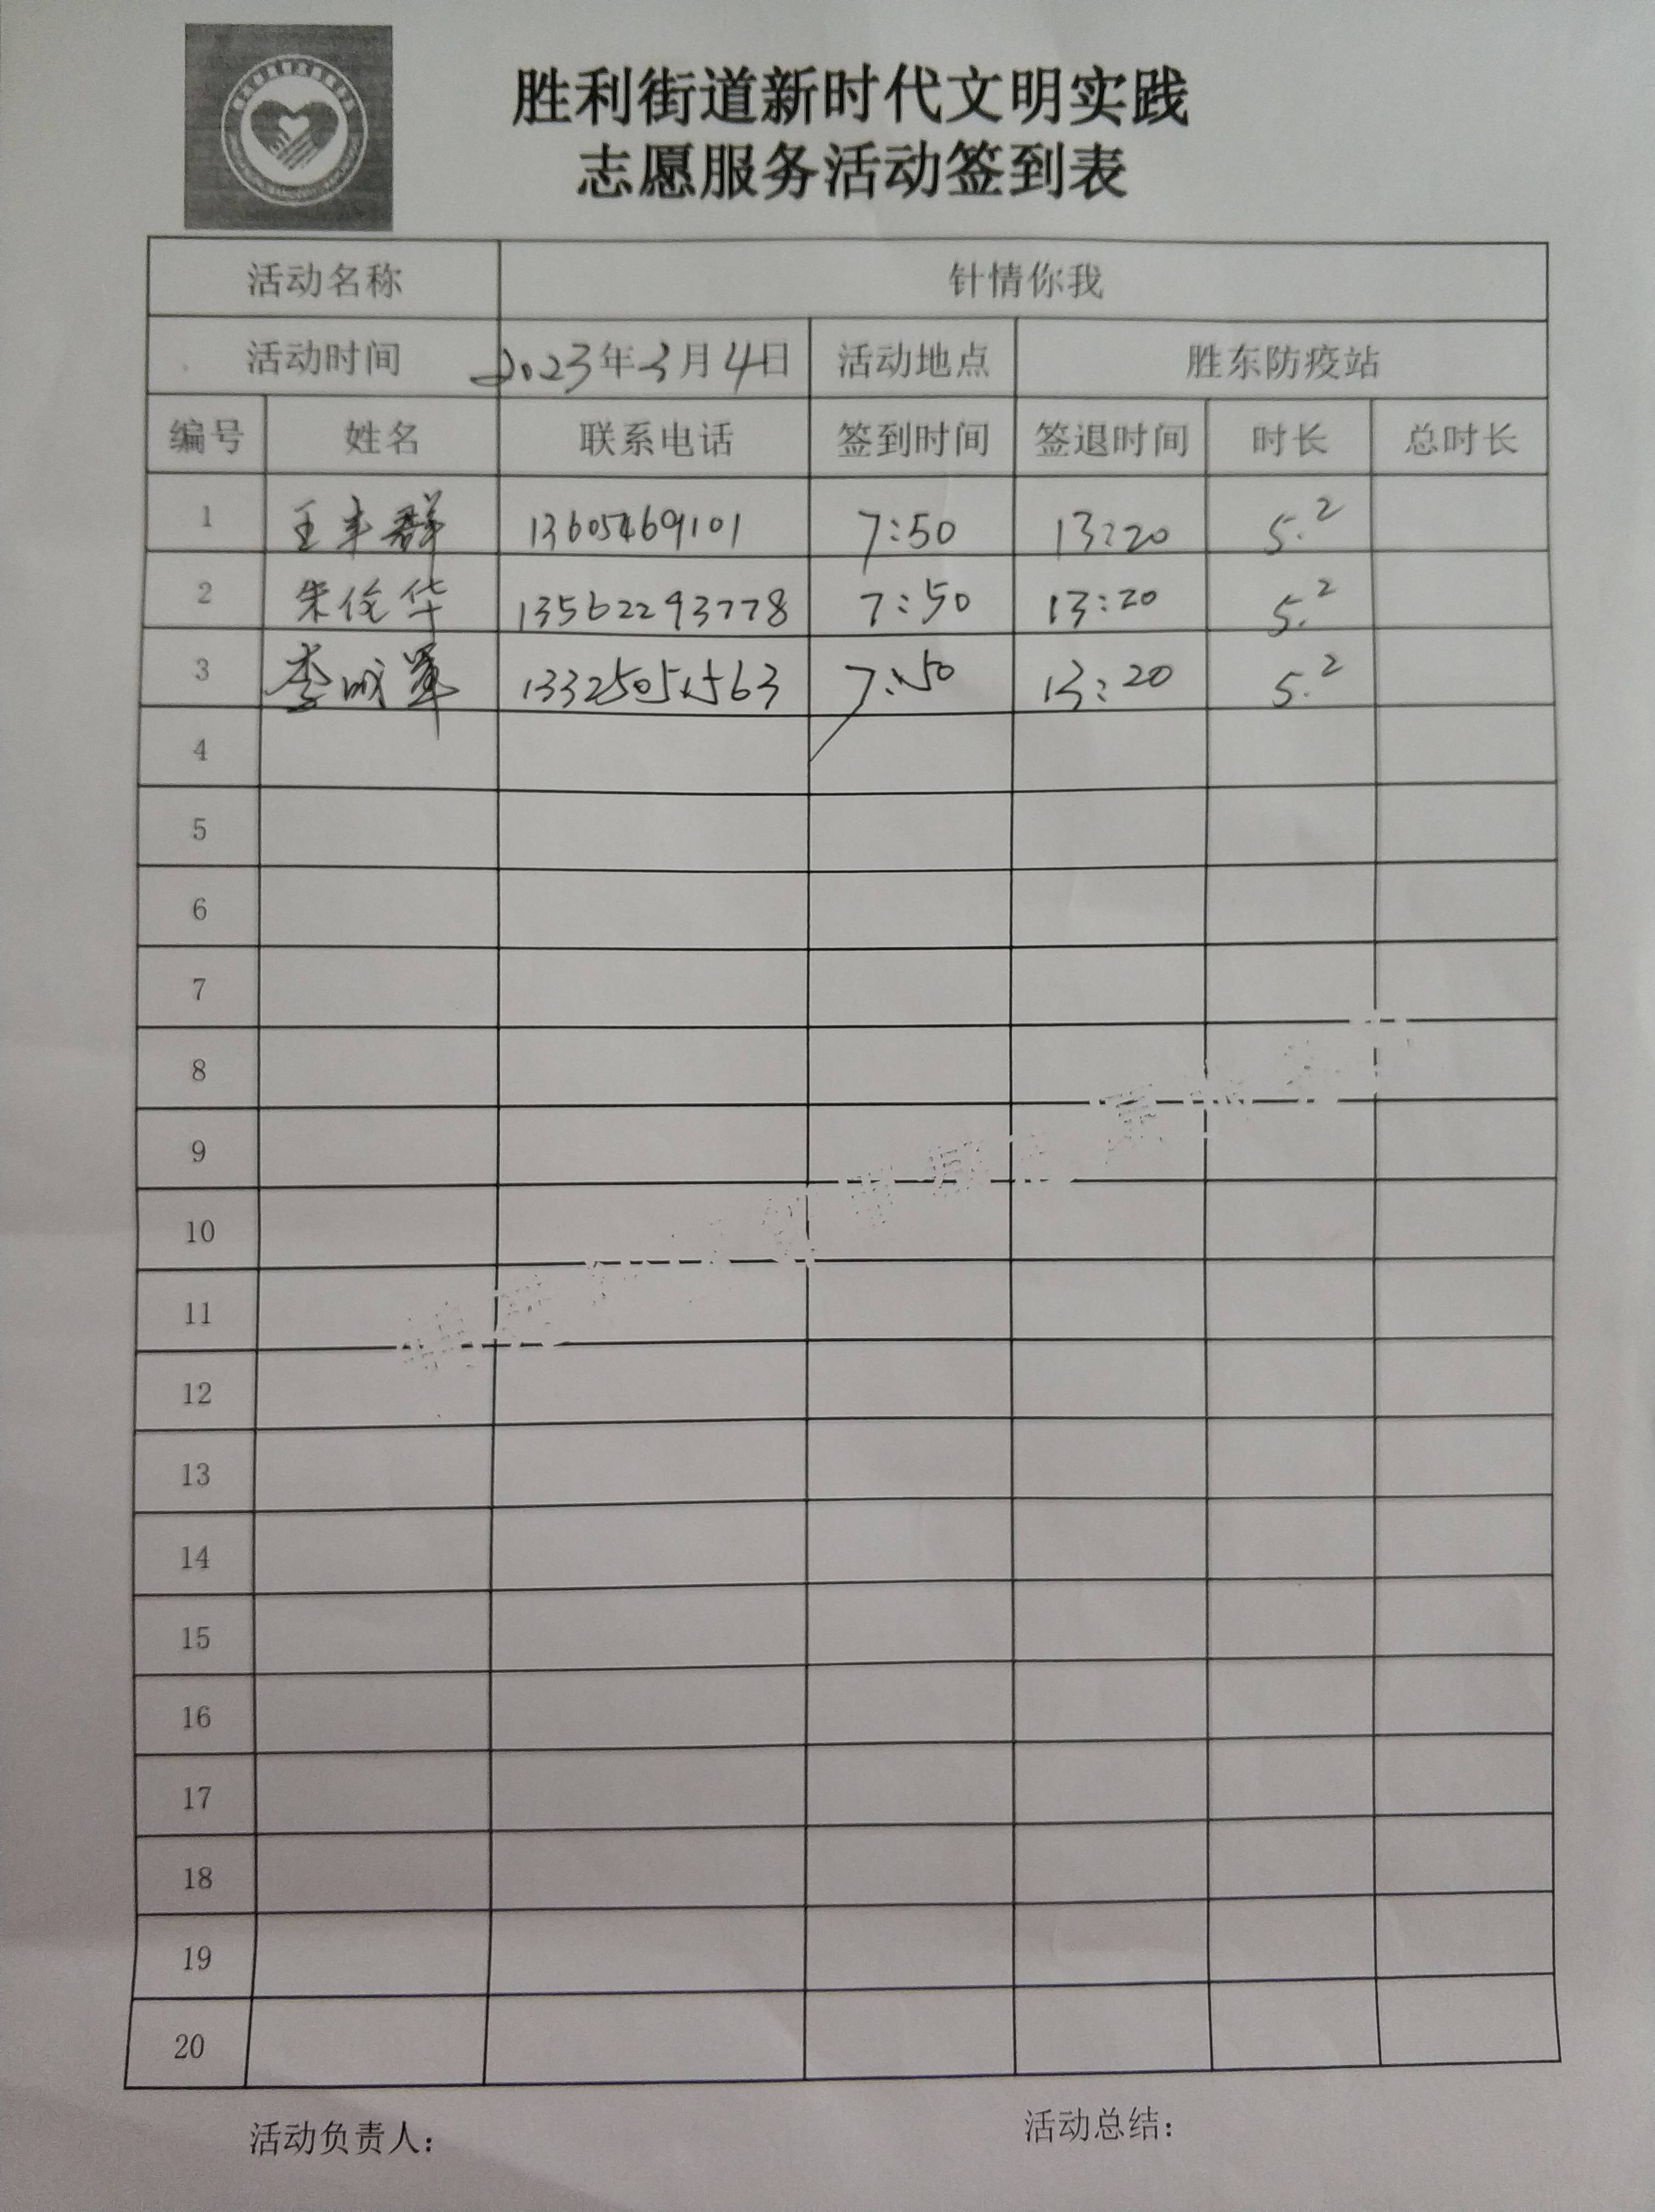 胜利街道新时代文明实践
志愿服务活动签到表
活动名称 针情你我
活动时间 2023年3月4日 活动地点 胜东防疫站
编号 姓名 联系电话 签到时间 签退时间 时长 总时长
1 王丰群 13605469101 7:50 13:20 5.2
2 朱伦华 13562293778 7:50 13:20 5.2
3 李成军 13325051563 7:50 13:20 5.2
4
5
6
7
8
9
10
11
12
13
14
15
16
17
18
19
20
活动负责人: 活动总结: